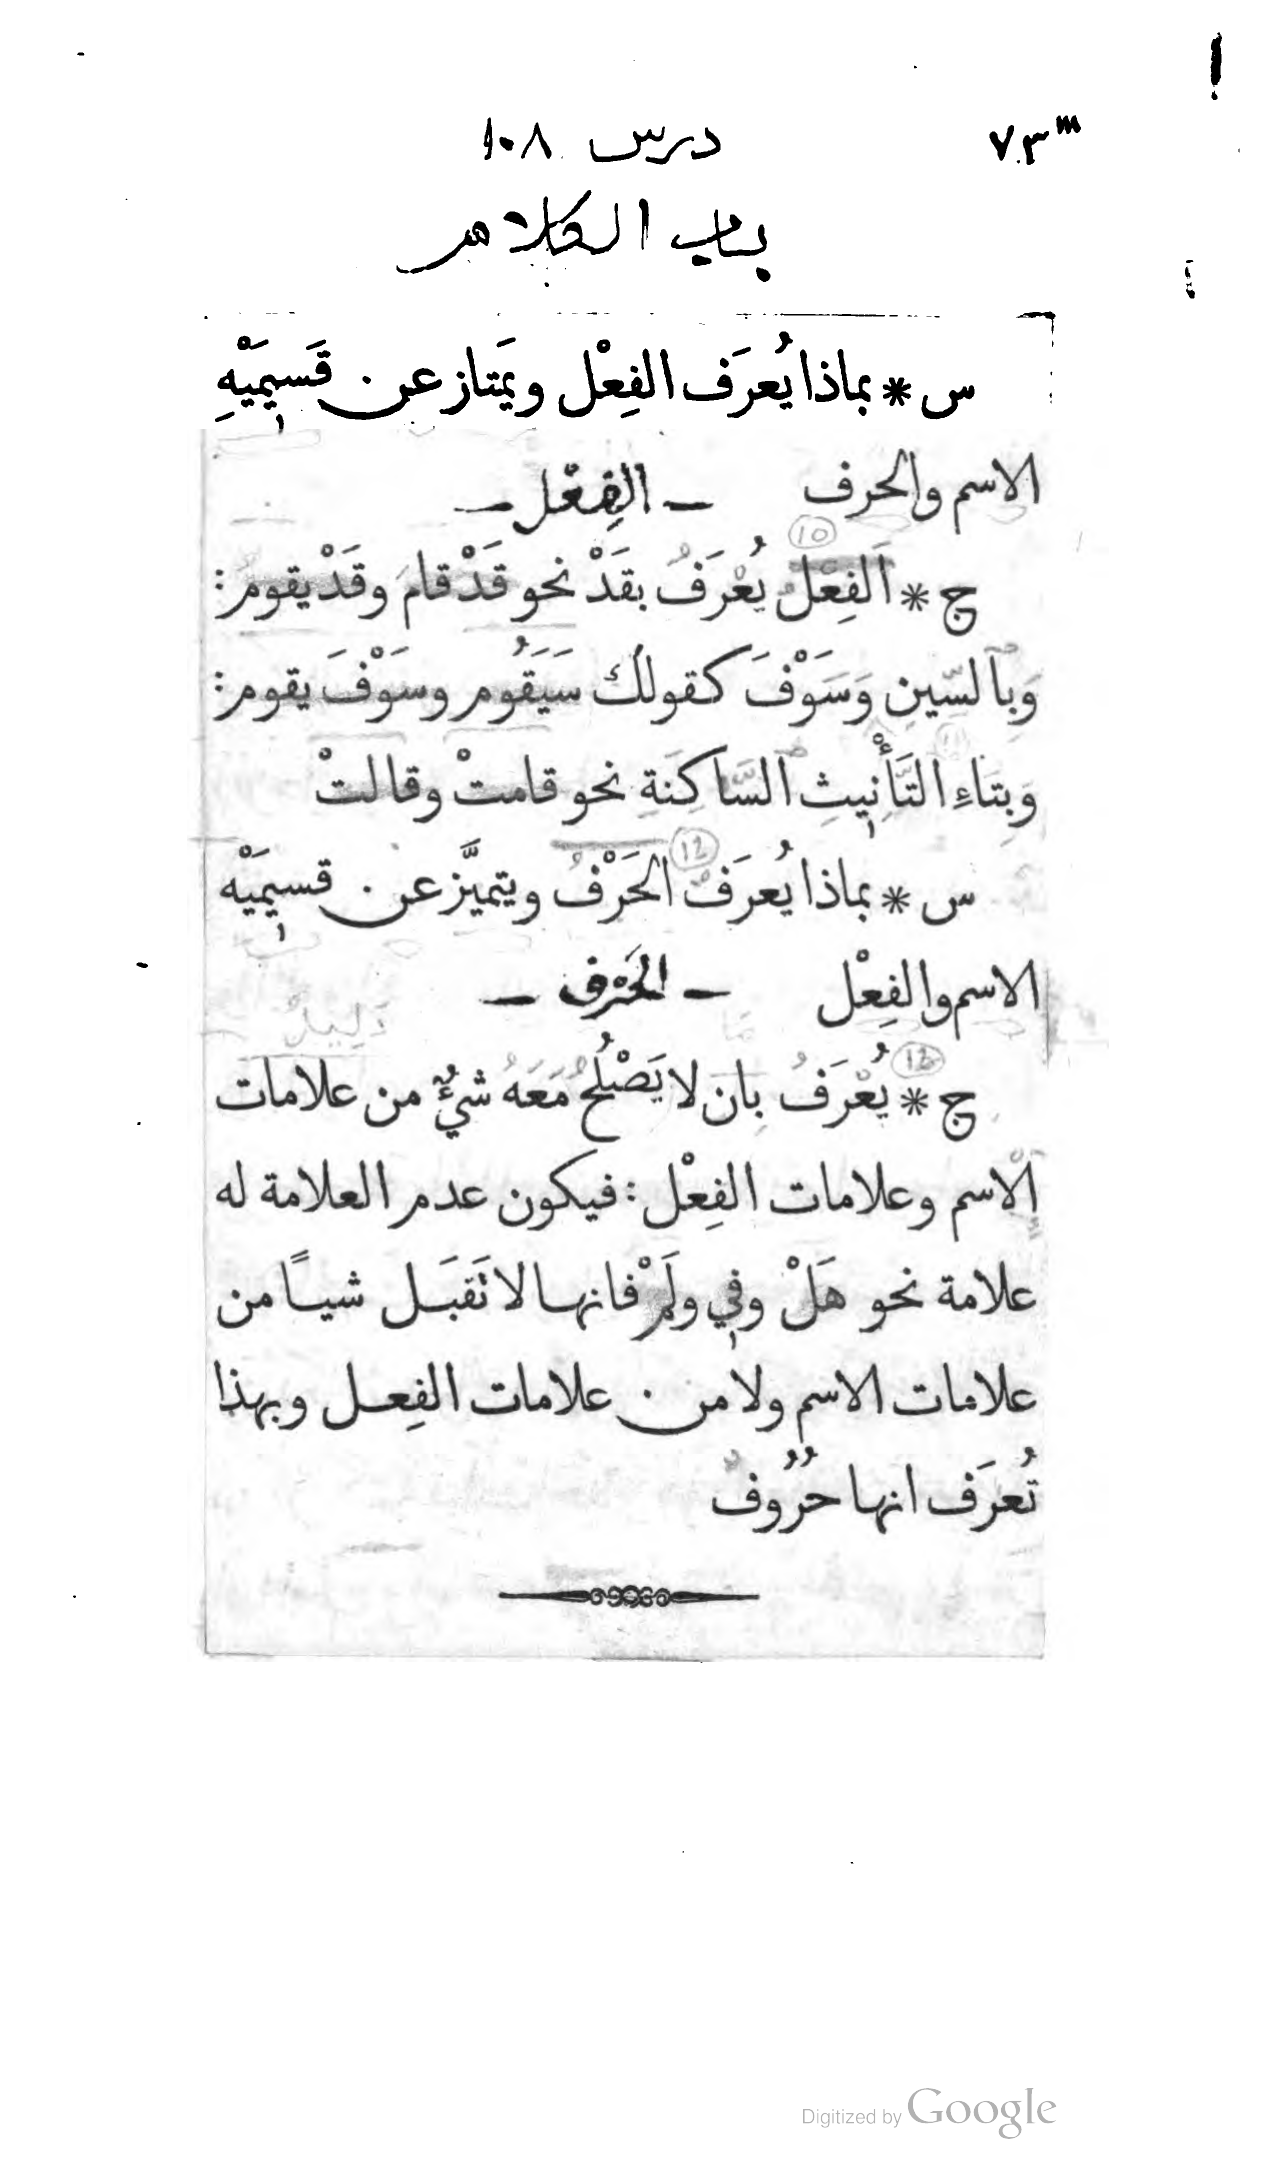 ٧٣
درس ١٠٨
باب الكلام
س * بماذا يُعرَف الفِعْل ويَمتاز عن قَسيمَيْهِ
الاسم والحرف — الفِعْل —
ج * اَلفِعْلُ يُعْرَفُ بقَدْ نحو قَدْ قامَ وقَدْ يقومُ :
وَبِالسّينِ وَسَوْفَ كقولكُ سَيَقُوم وسَوْفَ يقوم :
وَبِتَاءِ التَّأْنِيثِ السَّاكِنَةِ نحو قامتْ وقالتْ
س * بماذا يُعرَف الحَرْفُ ويتميَّز عن قسيمَيْه
الاسم والفِعْل — الحَرْف —
ج * يُعْرَفُ بِان لا يَصْلُحُ مَعَهُ شيْءٌ من علامات
الاسم وعلامات الفِعْل : فيكون عدم العلامة له
علامة نحو هَلْ وفي ولَمْ فانها لا تَقبَل شيـاً من
علامات الاسم ولا من علامات الفِعل وبهذا
تُعرَف انها حُرُوفٌ
10
11
12
13
Digitized by Google